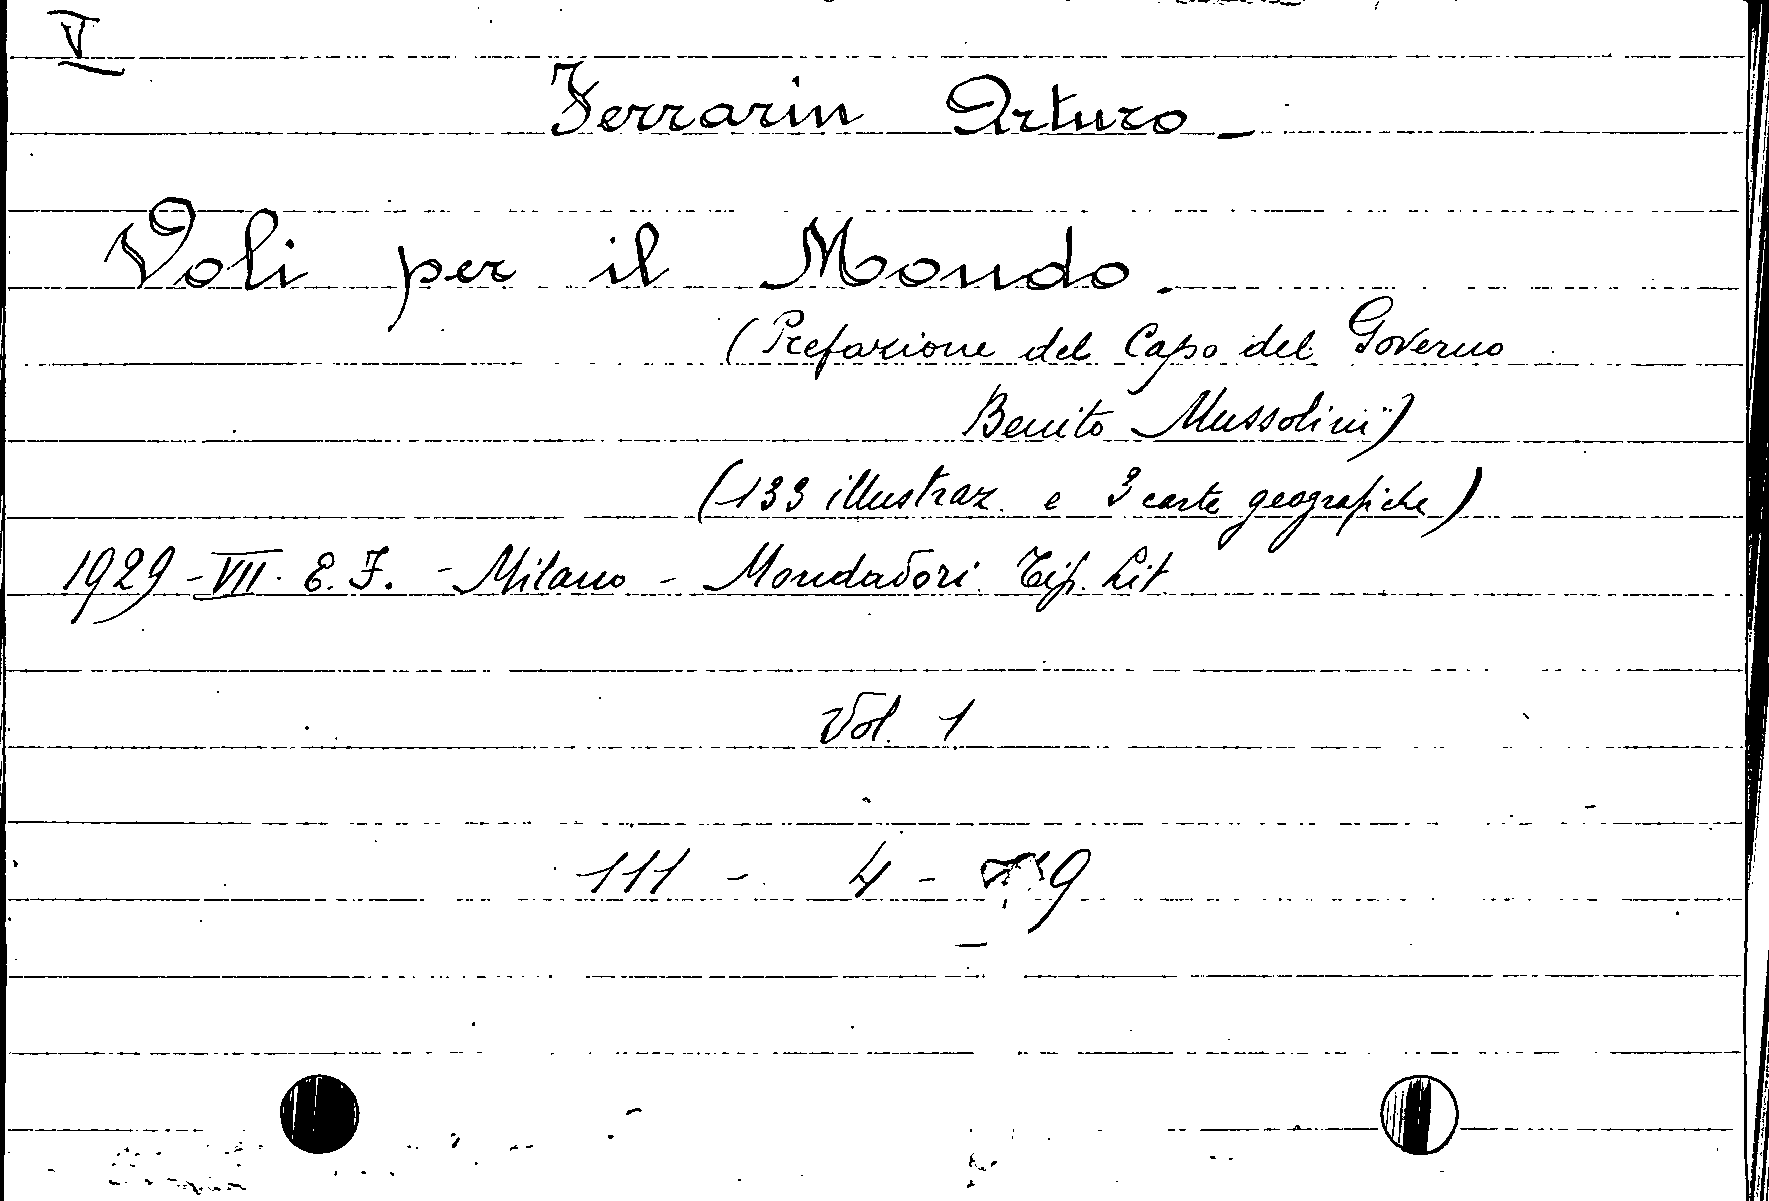 V
Ferrarin Arturo -
Voli per il Mondo.
(Prefazione del Capo del Governo
Benito Mussolini)
(133 illustraz. e 3 carte geografiche)
1929 - VII. E. F. - Milano - Mondadori. Tip. Lit
Vol. 1
111 - 4 - 9